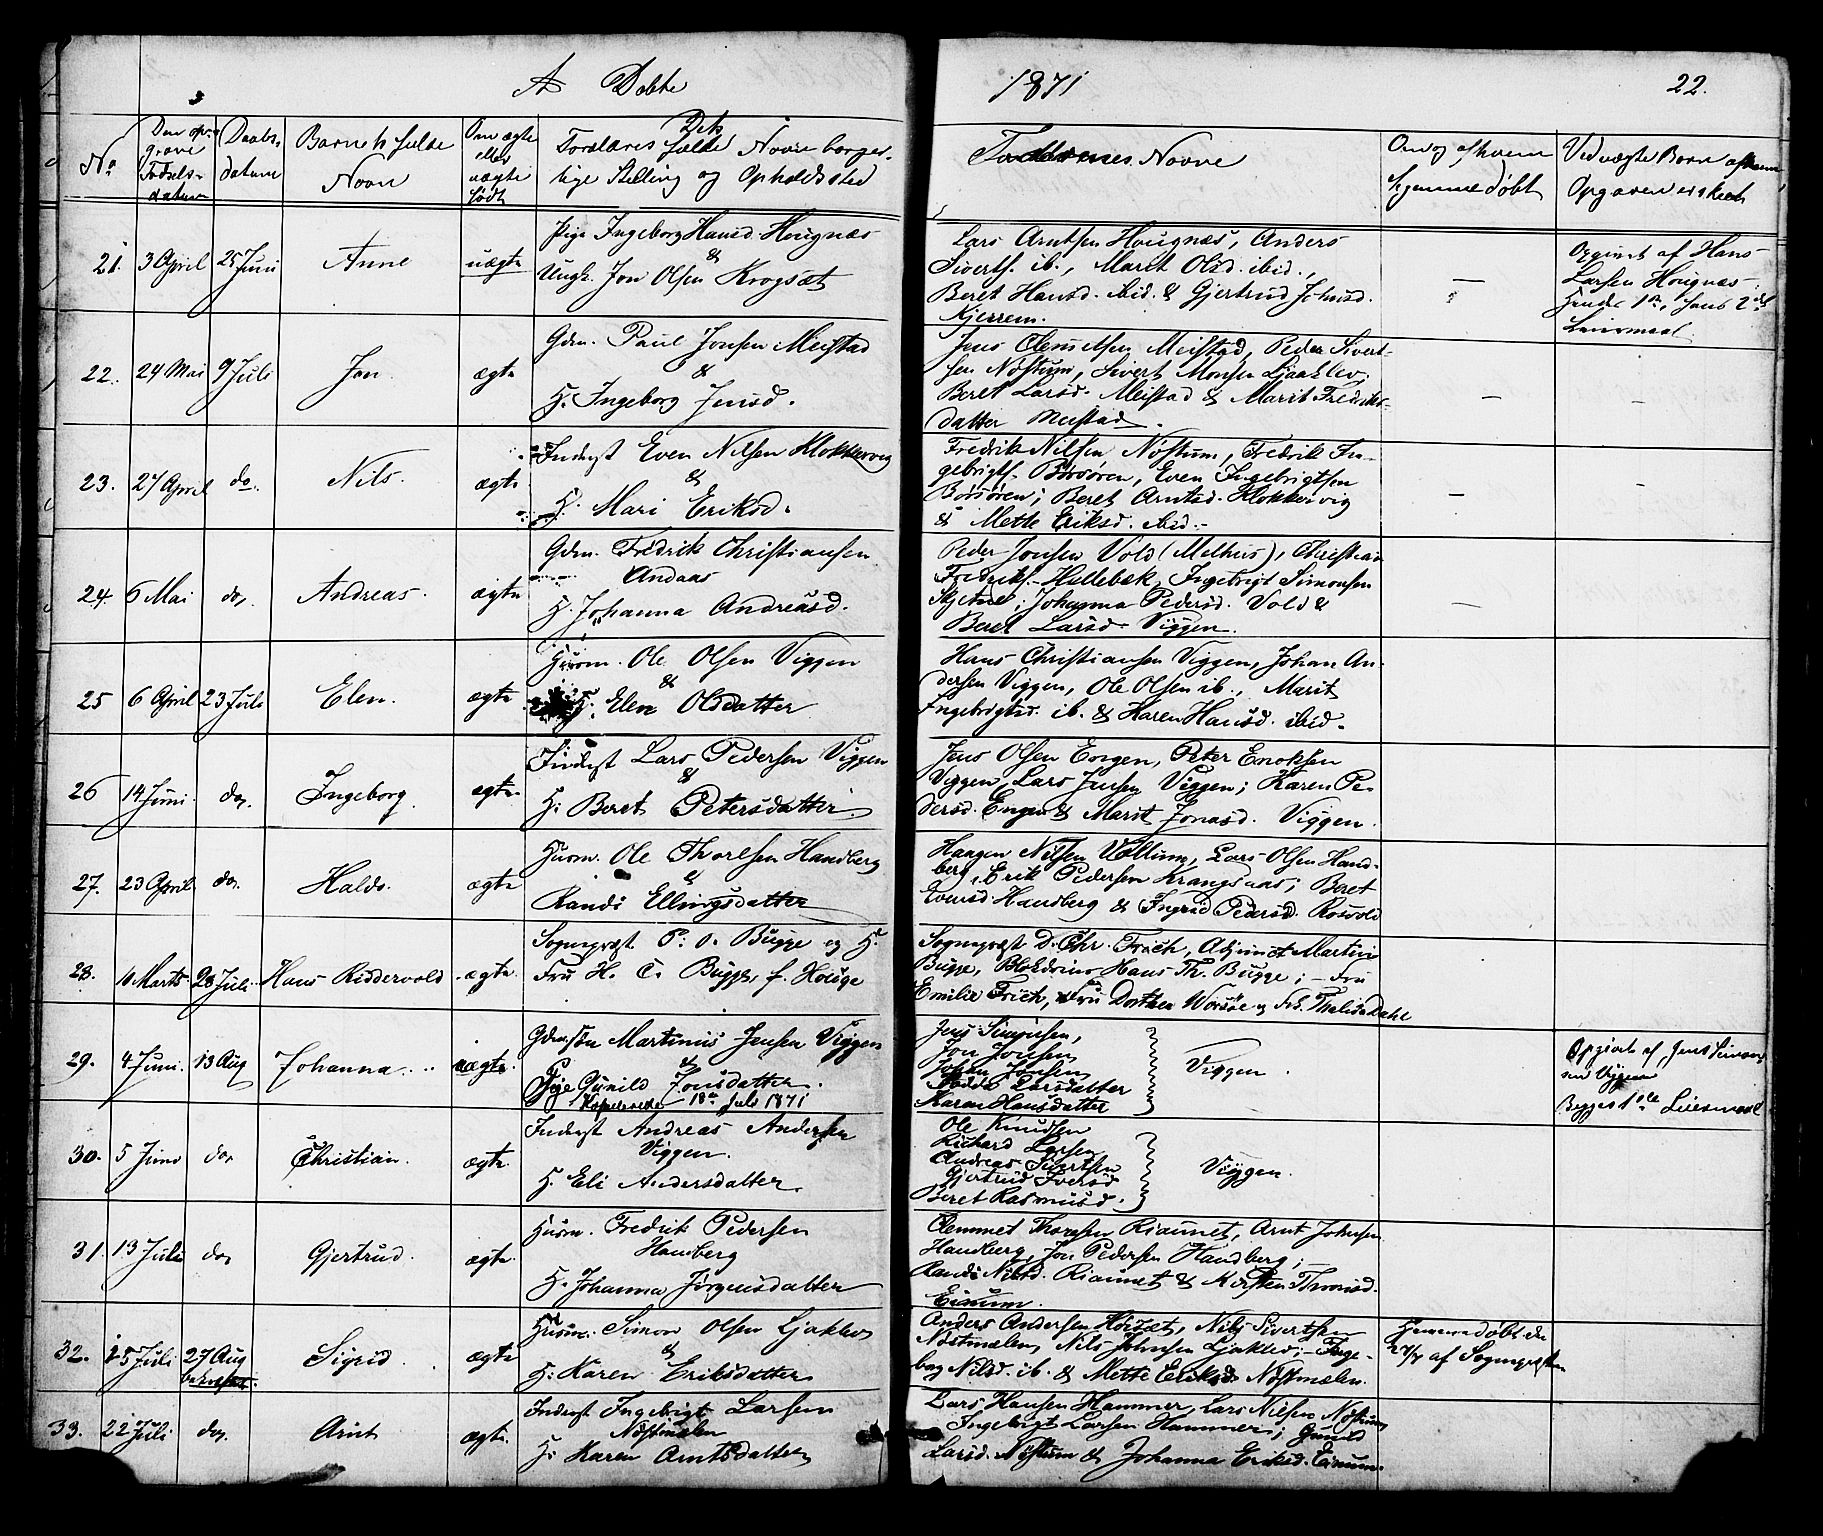 A Døbte
1871
22.
No
Den opgivne Fødselsdatum
Daabsdatum
Barnets fulde Navn
Om ægte eller uægte født
Forældres fulde Navne borgerlige Stilling og Opholdssted
Faddernes Navne
Om og af hvem hjemmedøbt
Ved uægte Børn af hvem Opgaven er skeet
21. 3 April 25 Juni Anne uægte
Pige Ingeborg Hansd. Hougnæs
&
Ungk. Jon Olsen Krogsæt
Lars Arntsen Hougnæs, Anders
Siverts. ib., Marit Olsd. ibid.,
Beret Hansd. ibid. & Gjertrud Johnsd.
Kjerrem.
—
Opgivet af Hans
Larsen Hougnæs
Hendes 1ste, hans 2det
Leiermaal.
22. 24 Mai 9 Juli Jon. ægte
Gdm. Paul Jonsen Meistad
&
H. Ingeborg Jensd.
Jens Clemetsen Meistad, Peder Sivert-
sen Nøstum, Sivert Monsen Ljaaklev,
Beret Larsd. Meistad & Marit Fredriks-
datter Meistad.
—
—
23. 27 April do. Nils. ægte
Inderst Even Nilsen Klokkervig
&
H. Mari Eriksd.
Fredrik Nilsen Nøstum, Fredrik In-
gebrigts. Børsøren, Even Ingebrigtsen
Børsøren; Beret Arntsd. Klokkervig
& Mette Eriksd. ibid.
—
—
24. 6 Mai do. Andreas. ægte
Gdm. Fredrik Christiansen
Andaas
H. Johanna Andreasd.
Peder Jonsen Vold (Melhus), Christian
Fredriks. Hallebæk, Ingebrigt Simonsen
Skjetnel; Johanna Pedersd. Vold &
Beret Larsd. Viggen.
—
25 6 April 23 Juli Elen. ægte
Husm. Ole Olsen Viggen
&
H. Elen Olsdatter
Hans Christiansen Viggen, Johan An-
dersen Viggen, Ole Olsen ib., Marit
Ingebrigtsd. ib. & Karen Hansd. ibid.
26 14 Juni. do. Ingeborg. ægte.
Inderst Lars Pedersen Viggen
&
H. Beret Petersdatter.
Jens Olsen Engen, Peter Enoksen
Viggen, Lars Jensen Viggen; Karen Pe-
dersd. Engen & Marit Jonasd. Viggen.
27. 23 April do. Haldo. ægte
Husm. Ole Thorlsen Handberg
&
Randi Ellingsdatter
Haagen Nilsen Vollum, Lars Olsen Hand-
berg, Erik Pedersen Krangsaas; Beret
Evensd. Handberg & Ingrid Pedersd. Rosvold
28. 10 Marts 28 Juli. Hans Riddervold ægte.
Sognepræst P. O. Bugge og H.
Fru H. C. Bugge, f. Houge
Sognepræst D. Chr. Frich, Adjunct Martin
Bugge, Hans Th. Bugge; Fru
Emilie Frich, Fru Dorthea Worsøe og Frk. Dahl
29. 4 Juni. 13 Aug Johanna uægte.
Gdmsøn Martinus Jensen Viggen
&
Pige Gunild Jonsdatter.
18de Juli 1871
Jens Simonsen,
Jon Jonsen
Johan Jonsen
Larsdatter
Karen Hansdatter
Viggen
Opgivet af Jens Simon-
sen Viggen
Begges 1ste Leiermaal
30. 5 Juni do. Christian. ægte.
Inderst Andreas Andersen
Viggen.
H. Eli Andersdatter.
Ole Knudsen
Richard Larsen
Andreas Sivertsen
Gjertrud Iversd
Beret Rasmusd.
Viggen.
31. 13 Juli do. Gjertrud. ægte.
Husm. Fredrik Pedersen
Handberg
H. Johanna Jørgensdatter
Clemmet Thorsen Riaunet, Arnt Johnsen
Handberg, Jon Pedersen Handberg;
Randi Nilsd. Riaunet & Kirsten Thomsd.
Einum.
32. 25 Juli 27 Aug Sigrid. ægte
Husm. Simon Olsen Ljaklev
&
H. Karen Eriksdatter
Anders Andersen Høisæt, Nils Sivertsen
Nøstmælen, Nils Johnsen Ljaklev; Inge-
borg Nilsd. ib. & Mette Eriksd. Nøstmælen.
Hjemmedøbt den
27/7 af Sognepræsten
33. 22 Juli do. Arnt ægte.
Inderst Ingebrigt Larsen
Nøstmælen
H. Karen Arntsdatter
Lars Hansen Hammer, Lars Nilsen Nøstum
Ingebrigt Larsen Hammer; Gunild
Larsd. Nøstum & Johanna Eriksd. Einum.